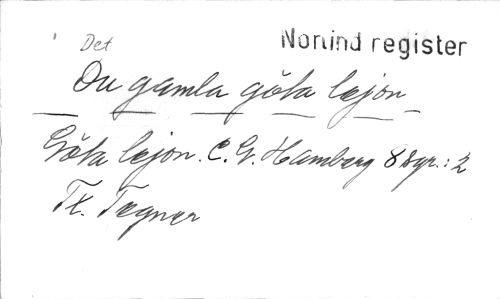 Norlind register
Det
Du gamla göta lejon
Göta lejon. C. G. Hamberg 8 sgr.: 2
Tx. Tegner